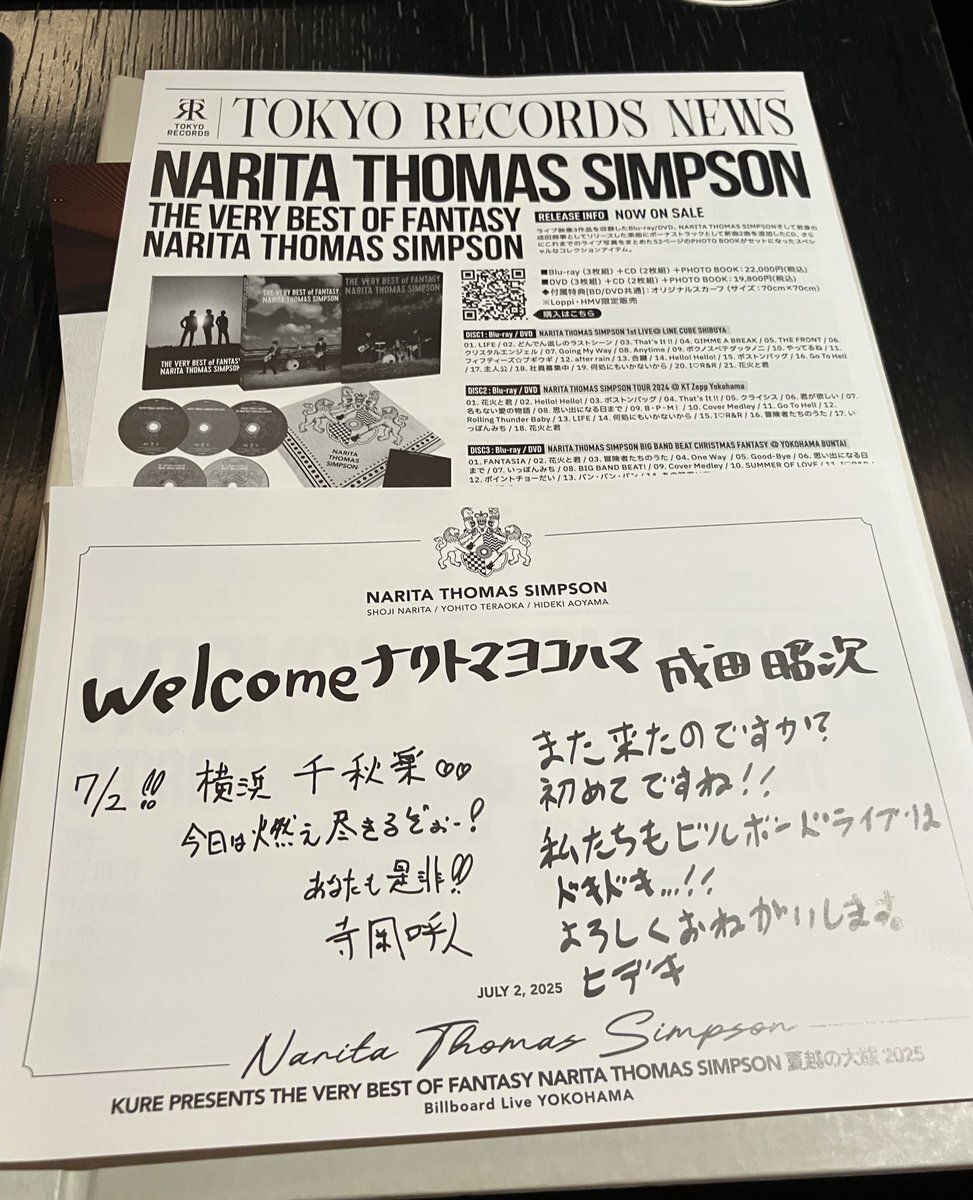 TOKYO RECORDS
TOKYO RECORDS NEWS
NARITA THOMAS SIMPSON
THE VERY BEST OF FANTASY
NARITA THOMAS SIMPSON
RELEASE INFO NOW ON SALE
ライブ映像3作品を収録したBlu-ray/DVD、NARITA THOMAS SIMPSONそして前身の
成田商事としてリリースした楽曲にボーナストラックとして新曲2曲を追加したCD、さら
にこれまでのライブ写真をまとめた52ページのPHOTO BOOKがセットになったスペシ
ャルなコレクションアイテム。
■Blu-ray (3枚組) +CD (2枚組) +PHOTO BOOK：22,000円(税込)
■DVD (3枚組) +CD (2枚組) +PHOTO BOOK：19,800円(税込)
◆付属特典[BD/DVD共通]：オリジナルスカーフ (サイズ：70cm×70cm)
※Loppi・HMV限定販売
購入はこちら
THE VERY BEST of FANTASY
NARITA THOMAS SIMPSON
THE VERY BEST of FANTASY
NARITA THOMAS SIMPSON
THE VERY BEST of FANTASY
NARITA THOMAS SIMPSON
NARITA
THOMAS
SIMPSON
DISC1 : Blu-ray / DVD NARITA THOMAS SIMPSON 1st LIVE@ LINE CUBE SHIBUYA
01. LIFE / 02. どんでん返しのラストシーン / 03. That's It !! / 04. GIMME A BREAK / 05. THE FRONT / 06.
クリスタルエンジェル / 07. Going My Way / 08. Anytime / 09. ボクノスベテダッタノニ / 10. やってるね / 11.
フィフティーズ☆ブギウギ / 12. after rain / 13. 合鍵 / 14. Hello! Hello! / 15. ボストンバッグ / 16. Go To Hell
/ 17. 主人公 / 18. 社員募集中 / 19. 何処にもいかないから / 20. I♡R&R / 21. 花火と君
DISC2 : Blu-ray / DVD NARITA THOMAS SIMPSON TOUR 2024 @ KT Zepp Yokohama
01. 花火と君 / 02. Hello! Hello! / 03. ボストンバッグ / 04. That's It !! / 05. クライシス / 06. 君が欲しい / 07.
名もない愛の物語 / 08. 思い出になる日まで / 09. B・P・M！ / 10. Cover Medley / 11. Go To Hell / 12.
Rolling Thunder Baby / 13. LIFE / 14. 何処にもいかないから / 15. I♡R&R / 16. 冒険者たちのうた / 17. い
っぽんみち / 18. 花火と君
DISC3 : Blu-ray / DVD NARITA THOMAS SIMPSON BIG BAND BEAT CHRISTMAS FANTASY @ YOKOHAMA BUNTAI
01. FANTASIA / 02. 花火と君 / 03. 冒険者たちのうた / 04. One Way / 05. Good-Bye / 06. 思い出になる日
まで / 07. いっぽんみち / 08. BIG BAND BEAT! / 09. Cover Medley / 10. SUMMER OF LOVE / 11. I♡R&R /
12. ポイントチョーだい / 13. パン・パン・パン
NARITA THOMAS SIMPSON
SHOJI NARITA / YOHITO TERAOKA / HIDEKI AOYAMA
welcomeナリトマヨコハマ 成田昭次
7/2!! 横浜 千秋楽♡♡
今日は燃え尽きるぞぉー!
あなたも是非!!
寺岡呼人
また来たのですか?
初めてですね!!
私たちもビルボードライブは
ドキドキ...!!
よろしくおねがいします。
ヒデキ
JULY 2, 2025
Narita Thomas Simpson
KURE PRESENTS THE VERY BEST OF FANTASY NARITA THOMAS SIMPSON 夏越の大祓 2025
Billboard Live YOKOHAMA